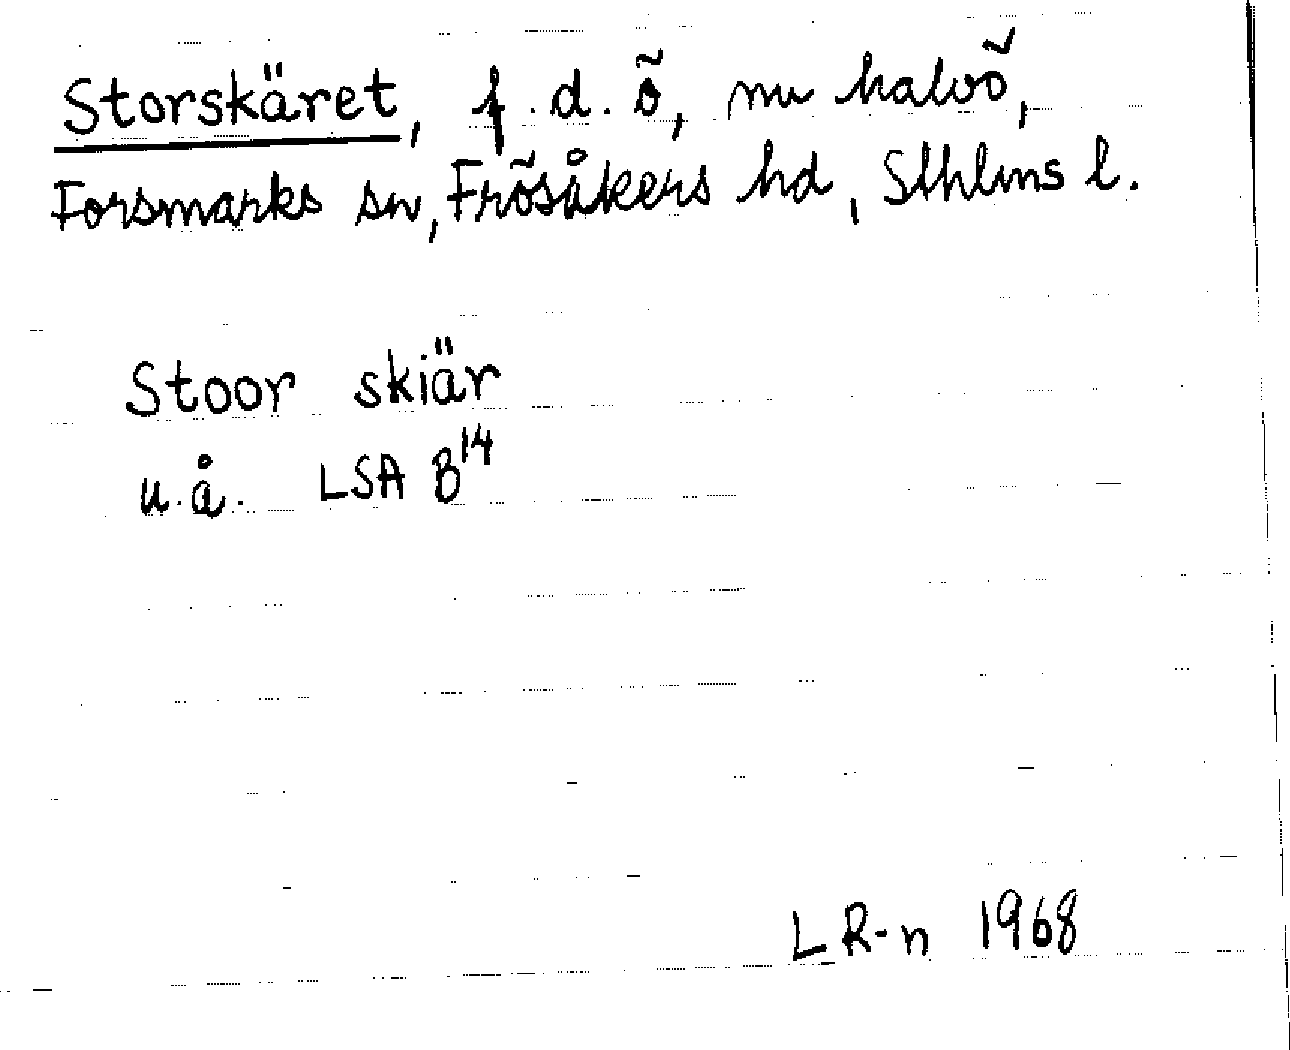 Storskäret, f.d. ö, nu halvö,
Forsmarks sn, Frösåkers hd, Sthlms l.
Stoor skiär
u.å. LSA B¹⁴
LR-n 1968